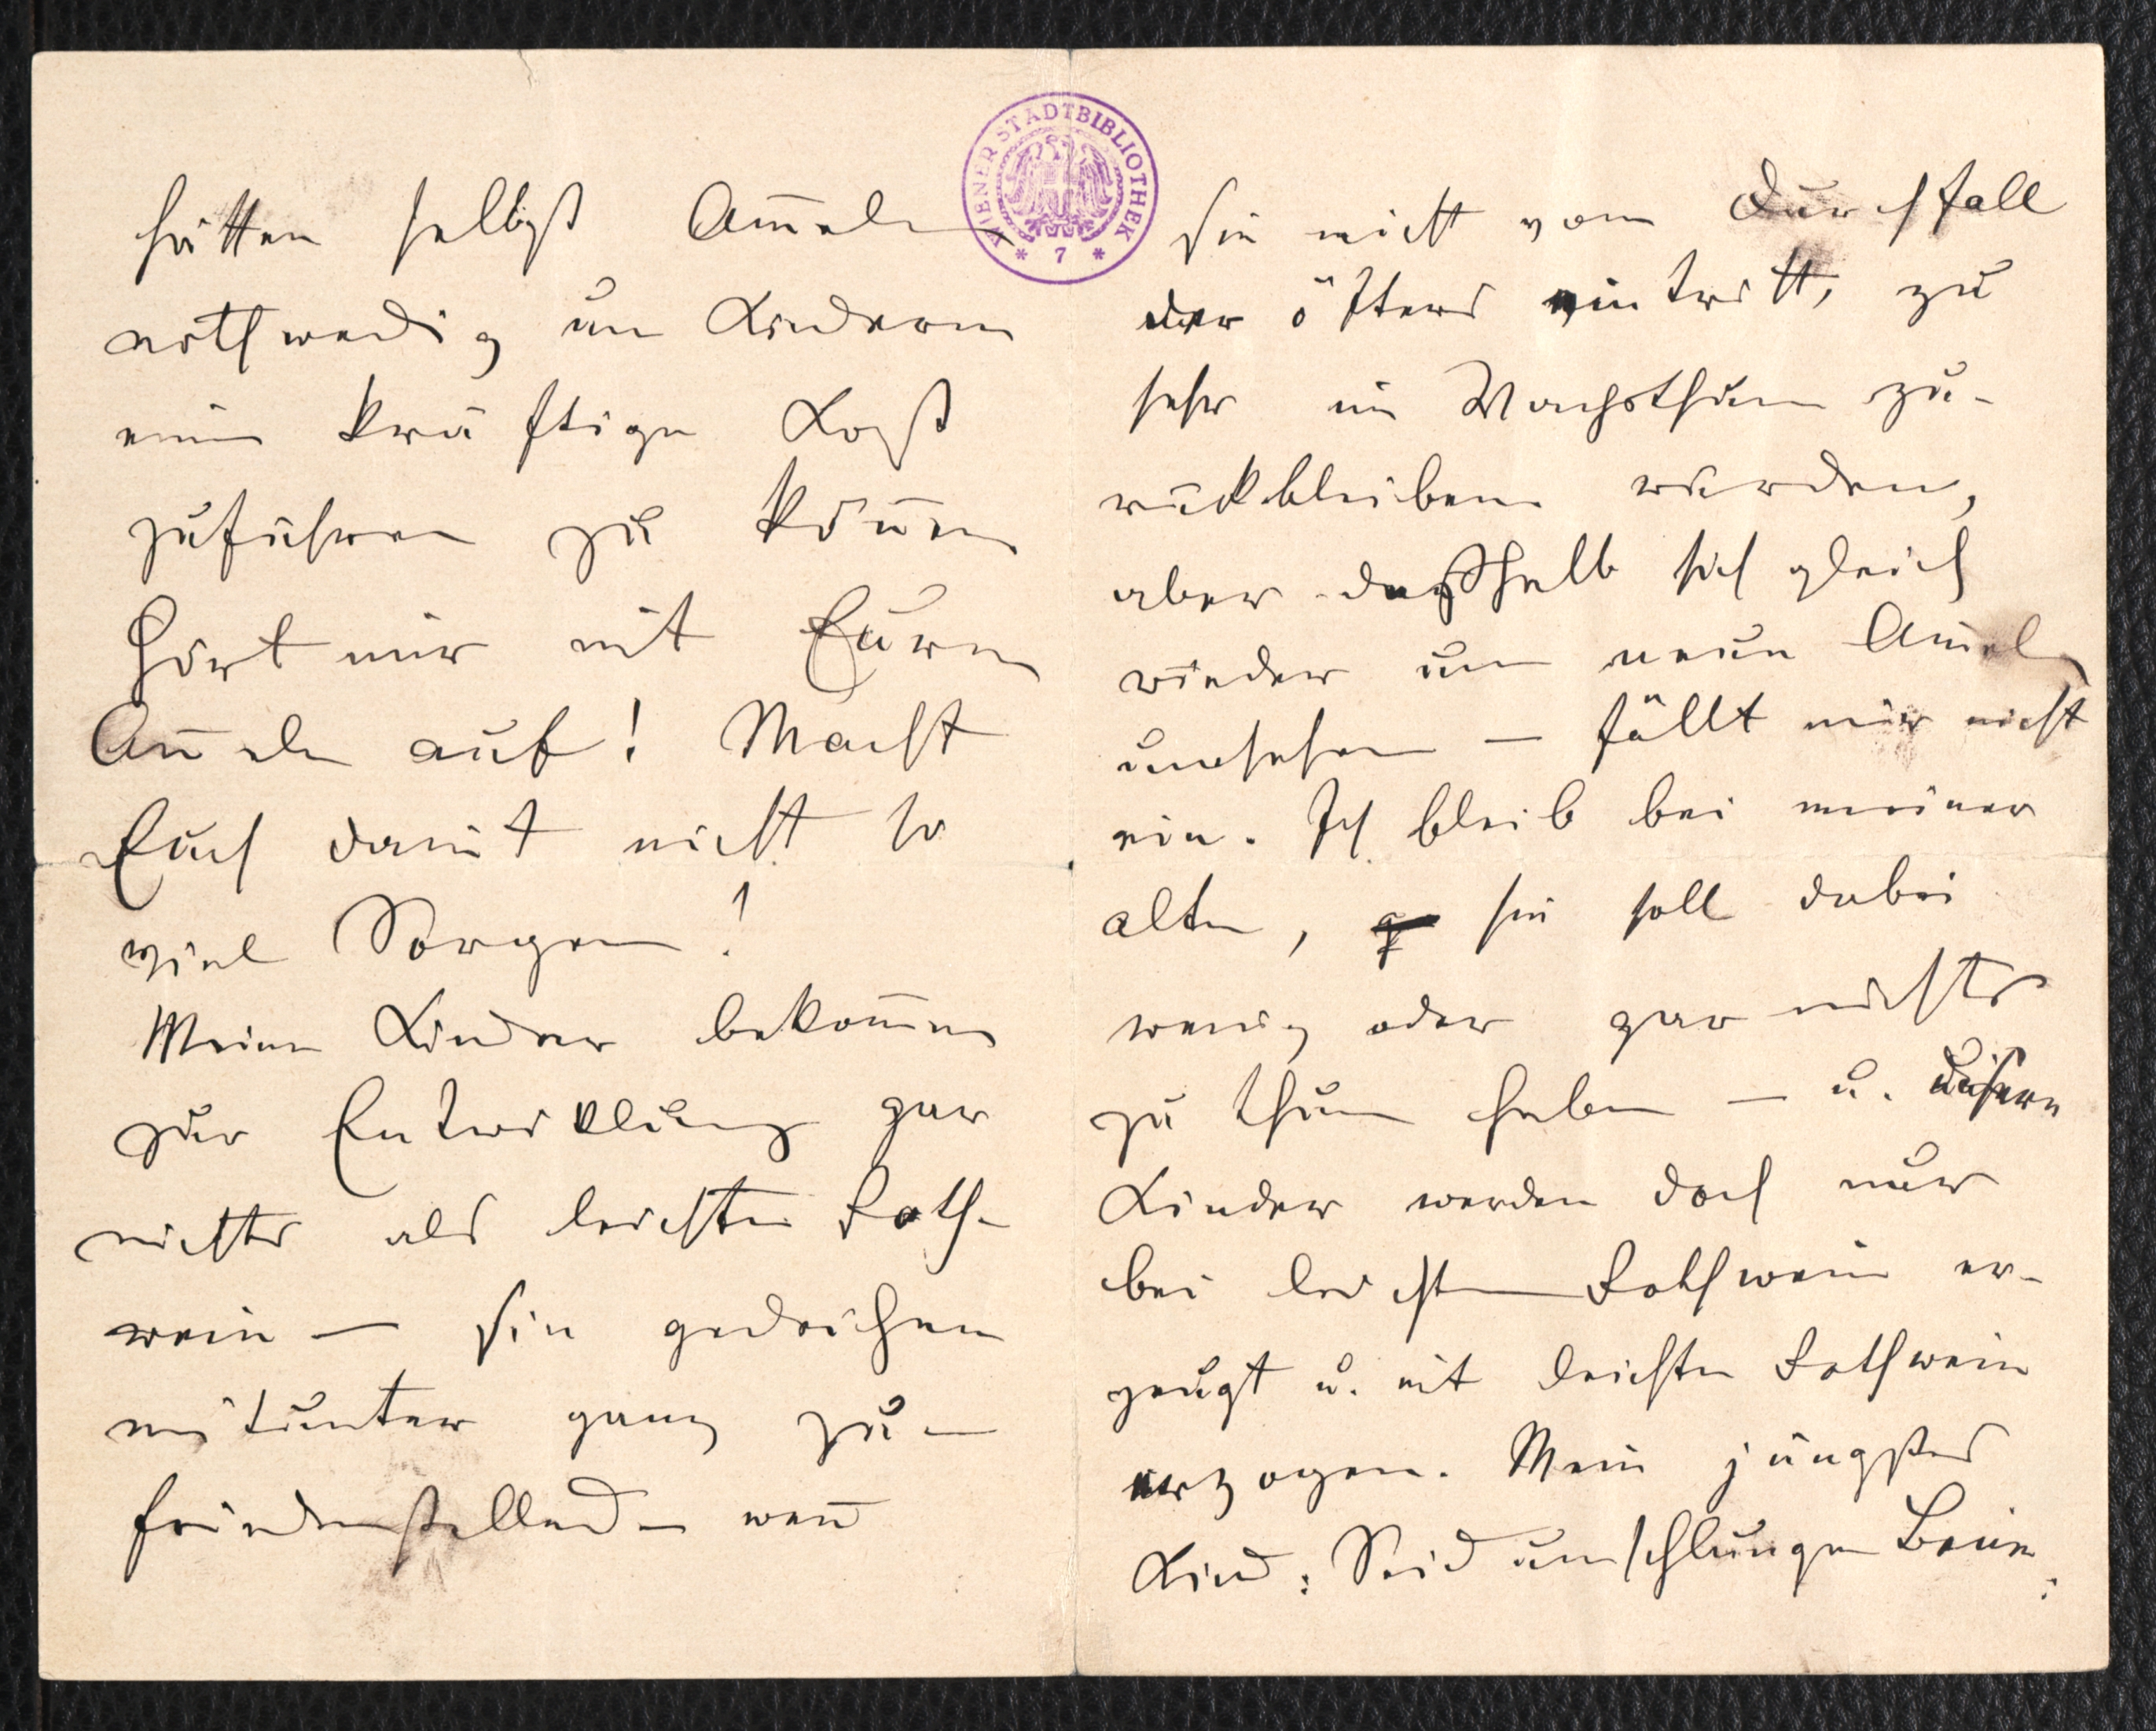 hätten selbst Am̄eln
nothwedig um Kindern
eine kräftige Kost
zuführen zu kön̄en
Hört mir mit Euren
Am̄eln auf! Macht
Euch damit nicht so
viel Sorgen!
Meine Kinder bekom̄en
zur Entwicklung gar
nichts als leichten Roth-
wein – sie gedeihen
mitunter ganz zu-
friedenstellend – wen̄
WIENER STADTBIBLIOTHEK
* 7 *
sie nicht vom Durchfall
der öfters eintritt, zu
sehr im Wachsthum zu-
rückbleiben würden,
aber deßhalb sich gleich
wieder um neue Am̄eln
umsehen – fällt mir nicht
ein. Ich bleib bei meiner
alten, sie soll dabei
wenig oder gar nichts
zu thun haben – u. unsere
Kinder werden doch nur
bei leichten Rothwein er-
zeugt u. mit leichten Rothwein
erzogen. Mein jüngstes
Kind: Seid umschlungen Beine: